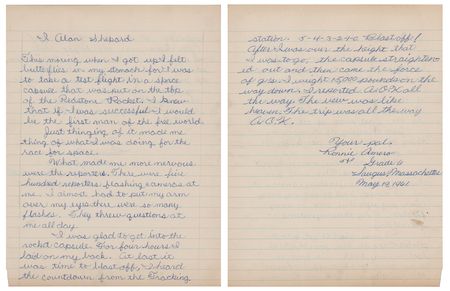 I Alan Shepard
This morning when I got up I felt
butterflies in my stomach for I was
to take a test flight in a space
capsule that was put on the top
of the Redstone Rocket. I knew
that if I was successful I would
be the first man of the free world.
Just thinging of it made me
thing of what I was doing for the
race for space.
What made me more nervous
were the reporters. There were five
hundred reporters flashing cameras at
me. I almost had to put my arm
over my eyes there were so many
flashes. They threw questions at
me all day.
I was glad to get into the
rocket capsule. For four hours I
laid on my back. At last it
was time to blast off, I heard
the countdown from the tracking
station. 5-4-3-2-1-0 Blast off!
After I was over the height that
I was to go, the capsule straighten
ed out and then came the force
of g's. I weight 1500 pounds on the
way down. I reported A.O.K. all
the way. The view was like
heaven. The trip was all the way
A.O.K.
Your pal,
Ronnie
Grade 6
Saugus Massachusettes
May 19, 1961